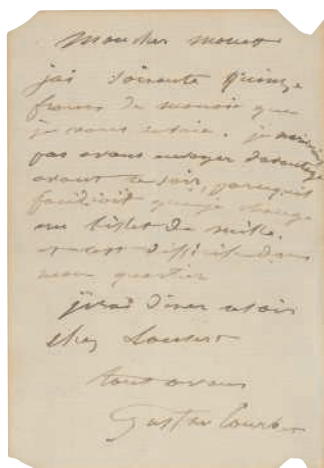 Mon cher monet
jai soixante quinze
francs de monoie que
je vous envoie. je
pas avous envoyer davantage
avant ce soir, parcequil
que je change
un billet de mille.
et cest difficile dans
mon quartier
jirai diner ce soir
chez Laveur
tout avous
Gustav Courbet